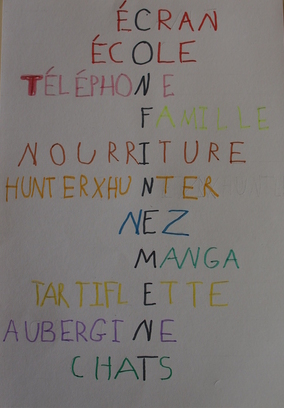 ÉCRAN
ÉCOLE
TÉLÉPHONE
FAMILLE
NOURRITURE
HUNTERXHUNTER
NEZ
MANGA
TARTIFLETTE
AUBERGINE
CHATS